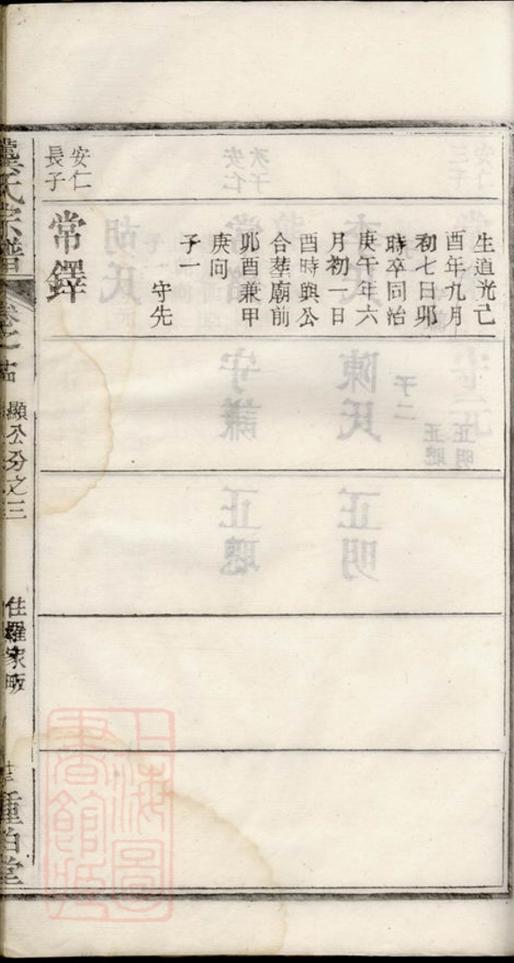 生道光己
酉年九月
初七日卯
時卒同治
庚午年六
月初一日
酉時與公
合塟廟前
卯酉兼甲
庚向
子一
守先
安仁
長子
常鐸
氏宗譜
顯公分之三
住羅家畈
上海圖
書館藏